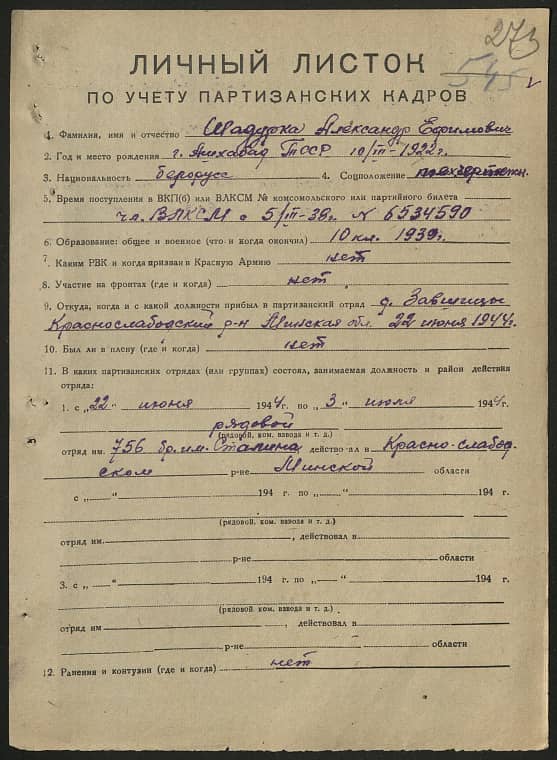 273
545
ЛИЧНЫЙ ЛИСТОК
ПО УЧЕТУ ПАРТИЗАНСКИХ КАДРОВ
1. Фамилия, имя и отчество Шадурка Александр Ефимович
2. Год и место рождения г. Ашхабад ТССР 10/III-1922г.
3. Национальность белорусс 4. Соцположение
5. Время поступления в ВКП(б) или ВЛКСМ № комсомольского или партийного билета
чл. ВЛКСМ с 5/III-38г. N 6534590
6. Образование: общее и военное (что и когда окончил) 10 кл. 1939г.
7. Каким РВК и когда призван в Красную Армию нет
8. Участие на фронтах (где и когда) нет
9. Откуда, когда и с какой должности прибыл в партизанский отряд д. Завшицы
Краснослабодский р-н Минская обл. 22 июня 1944г.
10. Был ли в плену (где и когда) нет
11. В каких партизанских отрядах (или группах) состоял, занимаемая должность и район действия
отряда:
1. с „22" июня 1944 г. по „3" июля 1944 г.
рядовой
(рядовой, ком. взвода и т. д.)
отряд им. 756 бр. им. Сталина действовал в Красно-слабод
ском р-не Минской области
с „ " 194 г. по „ " 194 г.
(рядовой, ком. взвода и т. д.)
отряд им. , действовал в
р-не области
3. с „ " 194 г. по „ " 194 г.
(рядовой, ком. взвода и т. д.)
отряд им , действовал в
р-не области
12. Ранения и контузии (где и когда) нет